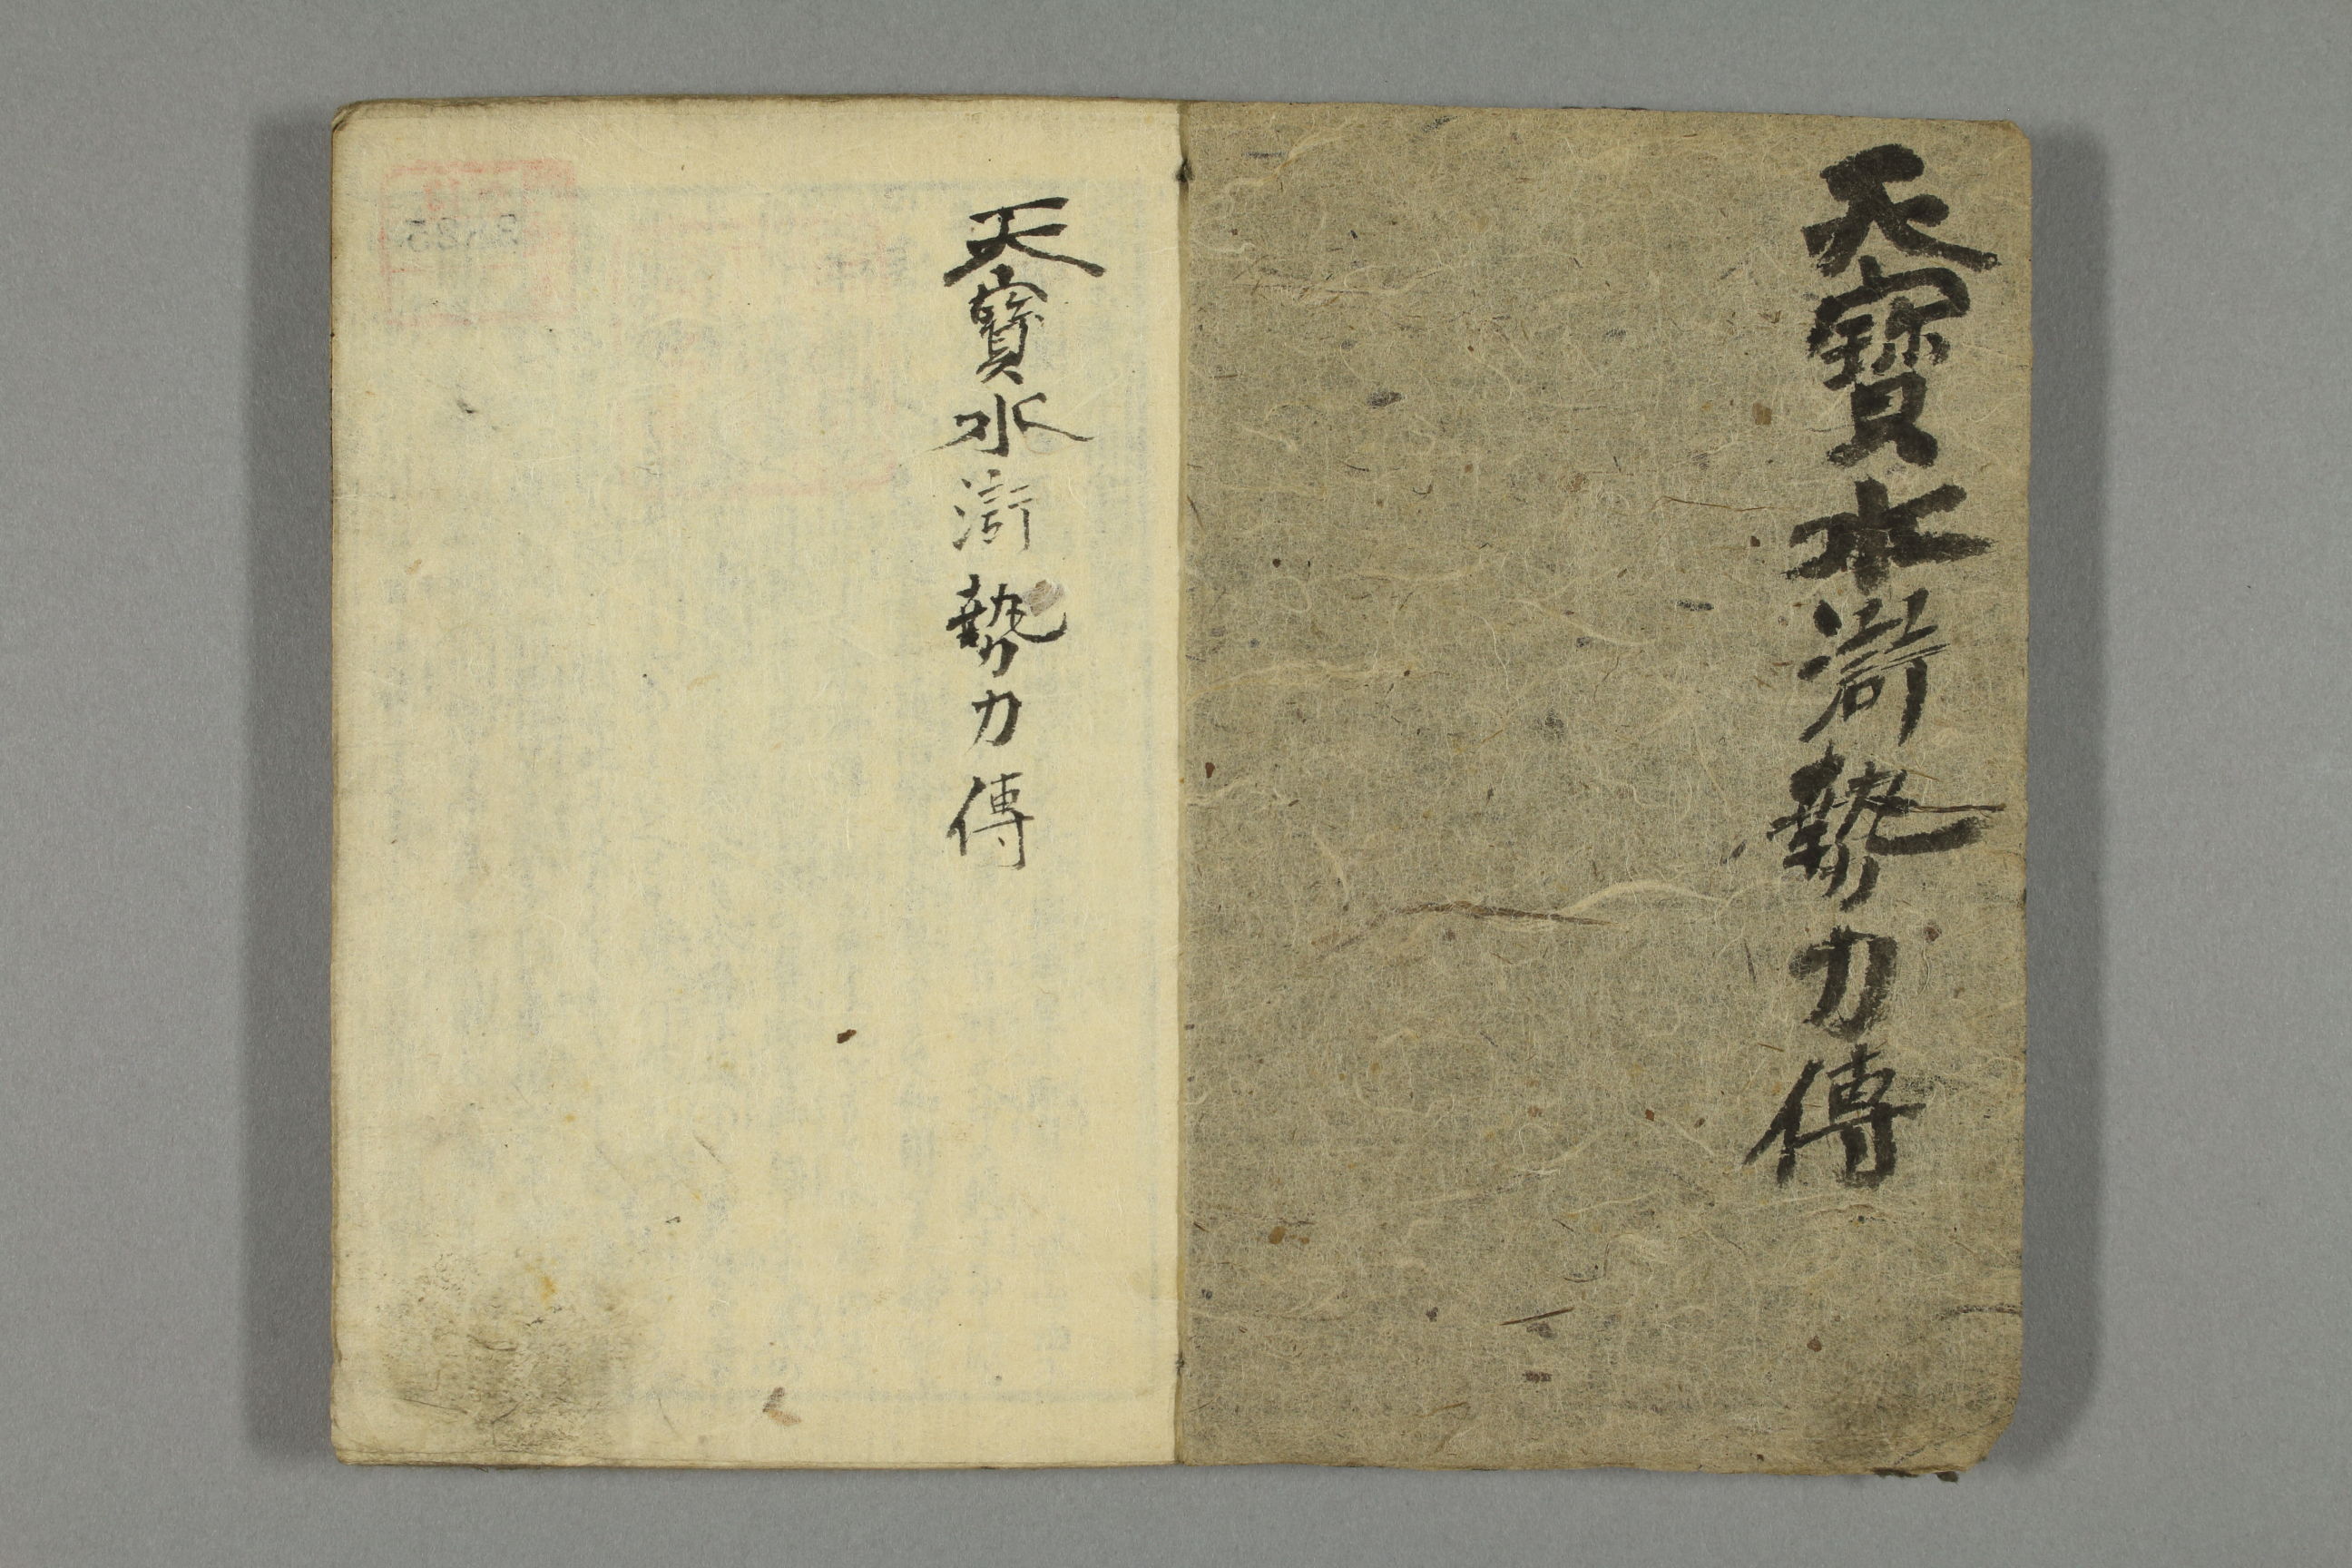 天寳水滸勢力傳
天寳水滸勢力傳